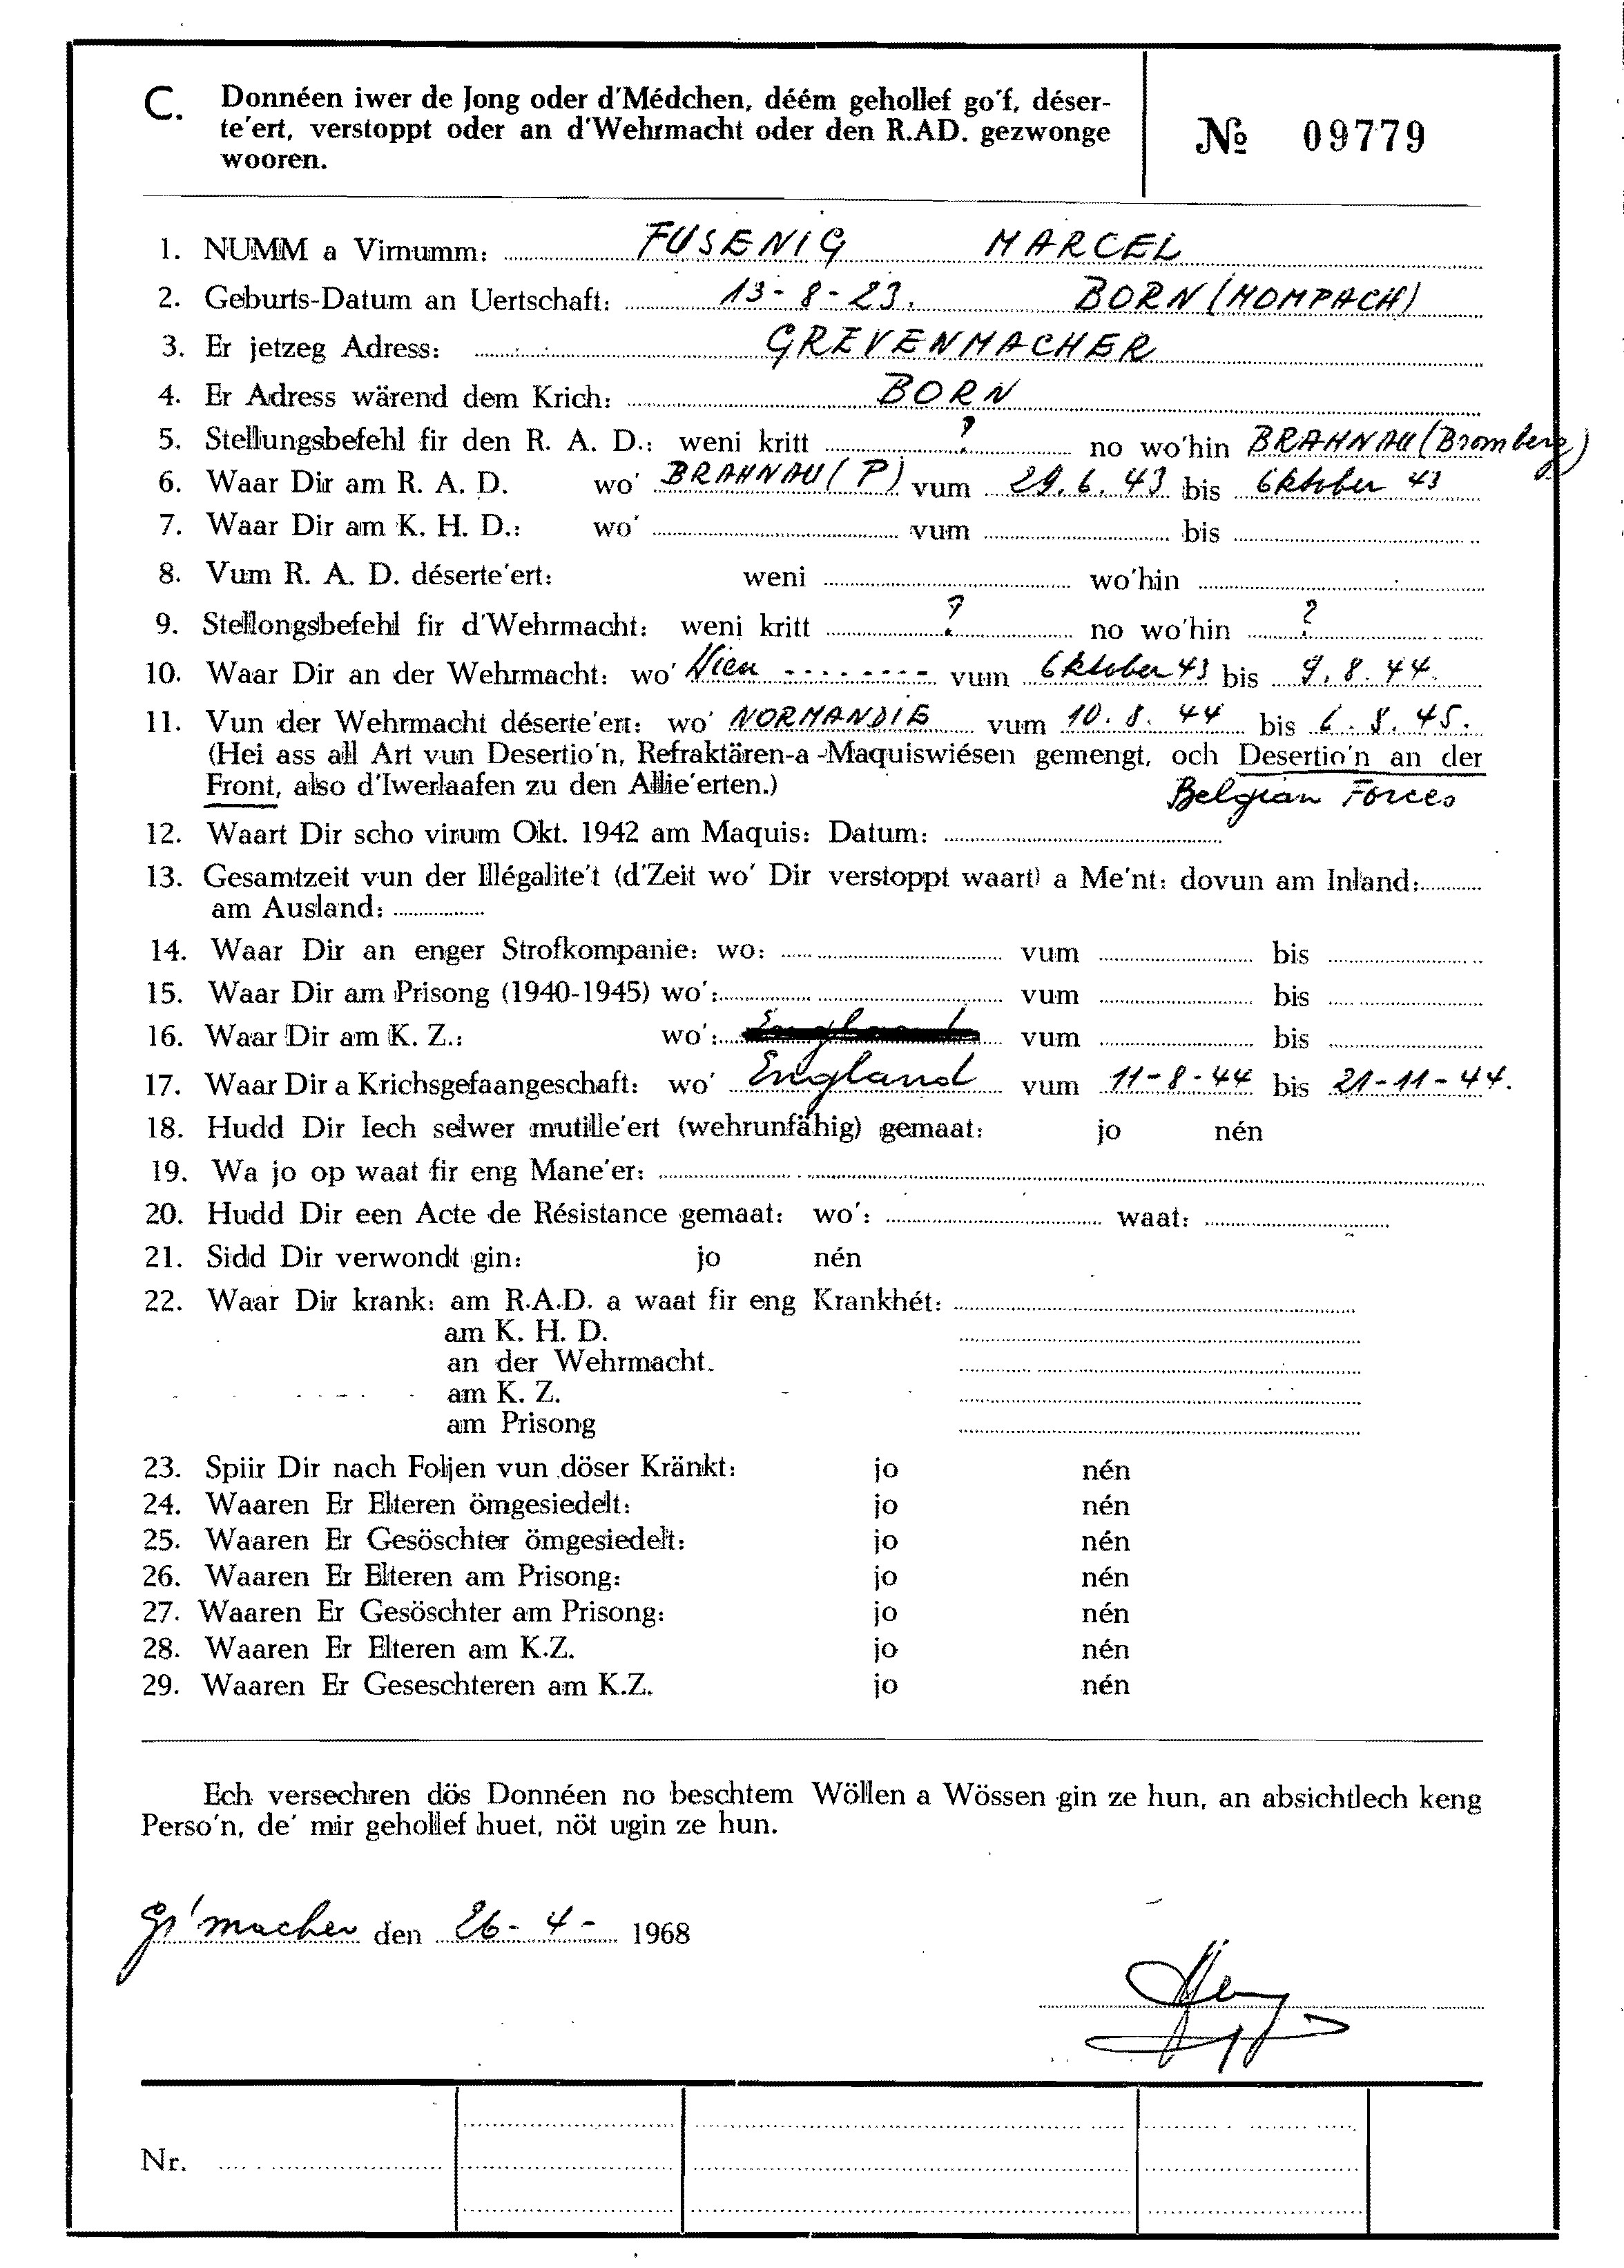 C. Donnéen iwer de Jong oder d'Médchen, déém gehollef go'f, déser-
te'ert, verstoppt oder an d'Wehrmacht oder den R.AD. gezwonge
wooren.
№ 09779
1. NUMM a Virnumm: FUSENIG MARCEL
2. Geburts-Datum an Uertschaft: 13-8-23. BORN (MOMPACH)
3. Er jetzeg Adress: GREVENMACHER
4. Er Adress wärend dem Krich: BORN
5. Stellungsbefehl fir den R. A. D.: weni kritt ? no wo'hin BRAHNAU (Bromberg)
6. Waar Dir am R. A. D. wo' BRAHNAU (P) vum 29.6.43 bis Oktober 43
7. Waar Dir am K. H. D.: wo' vum bis
8. Vum R. A. D. déserte'ert: weni wo'hin
9. Stellongsbefehl fir d'Wehrmacht: weni kritt ? no wo'hin ?
10. Waar Dir an der Wehrmacht: wo' Wien vum Oktober 43 bis 9.8.44.
11. Vun der Wehrmacht déserte'ert: wo' NORMANDIE vum 10.8.44 bis 6.8.45.
(Hei ass all Art vun Desertio'n, Refraktären-a-Maquiswiésen gemengt, och Desertio'n an der
Front, also d'Iwerlaafen zu den Allie'erten.) Belgian Forces
12. Waart Dir scho virum Okt. 1942 am Maquis: Datum:
13. Gesamtzeit vun der Illégalite't (d'Zeit wo' Dir verstoppt waart) a Me'nt: dovun am Inland:
am Ausland:
14. Waar Dir an enger Strofkompanie: wo: vum bis
15. Waar Dir am Prisong (1940-1945) wo': vum bis
16. Waar Dir am K. Z.: wo': vum bis
17. Waar Dir a Krichsgefaangeschaft: wo' England vum 11-8-44 bis 21-11-44.
18. Hudd Dir Iech selwer mutille'ert (wehrunfähig) gemaat: jo nén
19. Wa jo op waat fir eng Mane'er:
20. Hudd Dir een Acte de Résistance gemaat: wo': waat:
21. Sidd Dir verwondt gin: jo nén
22. Waar Dir krank: am R.A.D. a waat fir eng Krankhét:
am K. H. D.
an der Wehrmacht.
am K. Z.
am Prisong
23. Spiir Dir nach Foljen vun döser Kränkt: jo nén
24. Waaren Er Elteren ömgesiedelt: jo nén
25. Waaren Er Gesöschter ömgesiedelt: jo nén
26. Waaren Er Elteren am Prisong: jo nén
27. Waaren Er Gesöschter am Prisong: jo nén
28. Waaren Er Elteren am K.Z. jo nén
29. Waaren Er Geseschteren am K.Z. jo nén
Ech versechren dös Donnéen no beschtem Wöllen a Wössen gin ze hun, an absichtlech keng
Perso'n, de' mir gehollef huet, nöt ugin ze hun.
Gr'macher den 26-4- 1968
Nr.